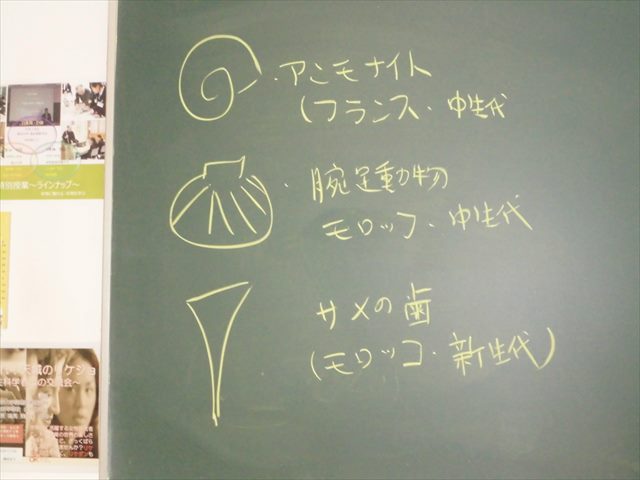 ・アンモナイト
(フランス・中生代
・腕足動物
モロッコ・中生代
サメの歯
(モロッコ・新生代)
特別授業～ラインナップ～
のリケジョ
の交流会～